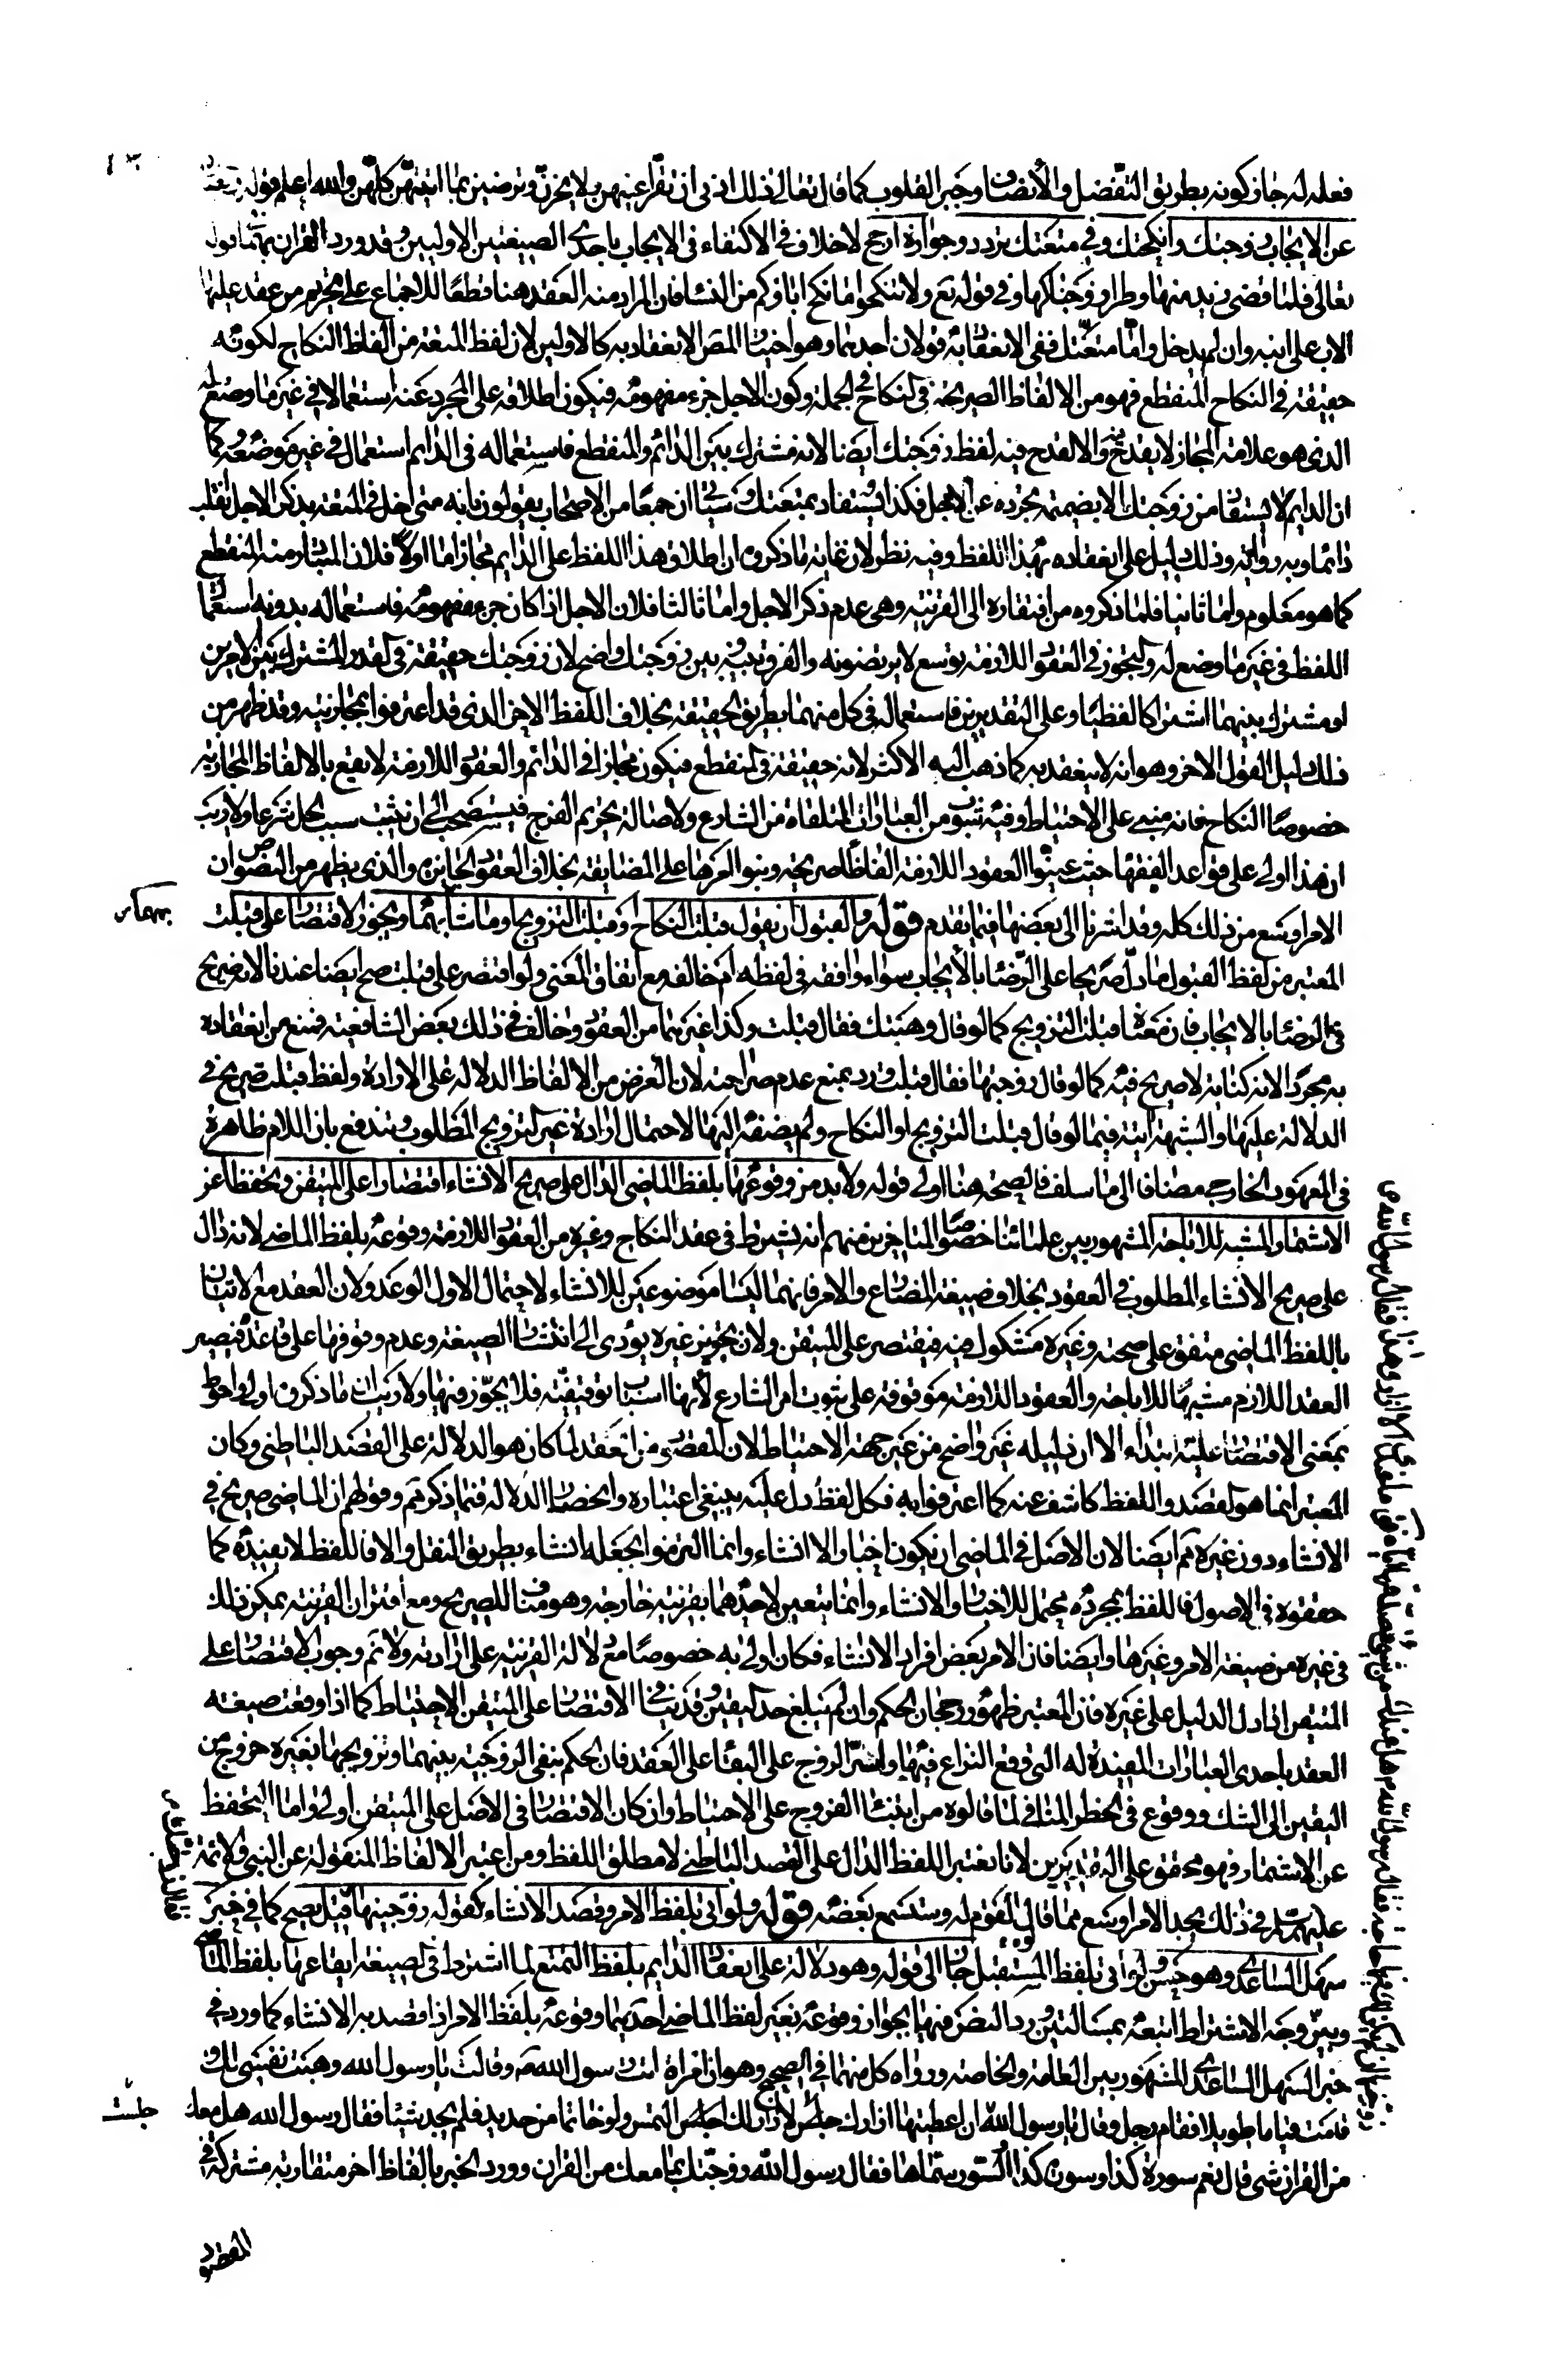 فعله له جاز كونه بطريق التفضل والانصاف وجبر القلوب كما قال تعالى ذلك ادنى ان تقر اعينهن ولا يحزن ويرضين بما اتيتهن كلهن والله اعلم قوله
عن الايجاب زوجتك وانكحتك وفي متعتك تردد وجوازه ارجح لا خلاف في الاكتفاء في الايجاب باحدى الصيغتين الاوليين وقد ورد القران بهما في قوله
تعالى فلما قضى زيد منها وطرا زوجناكها وفي قوله تع ولا تنكحوا ما نكح اباؤكم من النساء فان المراد منه العقد هنا قطعا للاجماع على تحريم من عقد عليها
الاب على ابنه وان لم يدخل واما متعتك ففي الانعقاد به قولان احدهما وهو اختيار المص الانعقاد به كالاولين لان لفظ المتعة من الفاظ النكاح لكونه
حقيقة في النكاح المنقطع فهو من الالفاظ الصريحة في النكاح في الجملة وكون الاجل جزء مفهومه فيكون اطلاقه على المجرد عنه استعمالا في غير ما وضع له
الذي هو علامة المجاز لا يقدح والا لقدح فيه لفظ زوجتك ايضا لانه مشترك بين الدائم والمنقطع فاستعماله في الدايم استعمال في غير موضوعه كما
ان الدايم لا يستفاد من زوجتك الا بضميمة تجرده عن الاجل فكذا يستفاد بمتعتك وسياتي ان جمعا من الاصحاب يقولون بانه متى اخل في المتعة بذكر الاجل انقلب
دائما وبه رواية وذلك دليل على انعقاده بهذا اللفظ وفيه نظر لان غاية ما ذكروه ان اطلاق هذا اللفظ على الدايم مجاز اما اولا فلان المتبادر منه المنقطع
كما هو معلوم واما ثانيا فلما ذكروه من افتقاره الى القرينة وهي عدم ذكر الاجل واما ثالثا فلان الاجل اذا كان جزء مفهومه فاستعماله بدونه استعمال
اللفظ في غير ما وضع له والتجوز في العقود اللازمة توسع لا يرتضونه والفرق بينه وبين زوجتك واضح لان زوجتك حقيقة في القدر المشترك بين الامرين
او مشترك بينهما اشتراكا لفظيا وعلى التقديرين فاستعماله في كل منهما بطريق الحقيقة بخلاف اللفظ الاخر الذي قد اعترفوا بمجازيته وقد ظهر من
ذلك دليل القول الاخر وهو انه لا ينعقد به كما ذهب اليه الاكثر لانه حقيقة في المنقطع فيكون مجازا في الدائم والعقود اللازمة لا تقع بالالفاظ المجازية
خصوصا النكاح فانه مبني على الاحتياط وفيه شوب من العبادات المتلقاة من الشارع ولاصالة تحريم الفرج فيستصحب الى ان يثبت سبب الحل شرعا ولا ريب
ان هذا اولى على قواعد الفقهاء حيث عينوا للعقود اللازمة الفاظا صريحة وبنوا امرها على المضايقة بخلاف العقود الجايزة والذي يظهر من النصوص ان
الامر اوسع من ذلك كله وقد اشرنا الى بعضها فيما تقدم قوله والقبول ان يقول قبلت النكاح او قبلت التزويج او ما شابههما ويجوز الاقتصار على قبلت
المعتبر من لفظ القبول ما دل صريحا على الرضا بالايجاب سواء وافقه في لفظه ام خالفه مع اتفاق المعنى ولو اقتصر على قبلت صح ايضا عندنا لانه صريح
في الرضا بالايجاب فان معناه قبلت التزويج كما لو قال وهبتك فقال قبلت وكذا غيرهما من العقود وخالف في ذلك بعض الشافعية فمنع من انعقاده
به مجردا لانه كناية لا صريح فيه كما لو قال زوجتها فقال قبلت ورد بمنع عدم صراحته لان الغرض من الالفاظ الدلالة على الارادة ولفظ قبلت صريح في
الدلالة عليها والشبهة اتية فيما لو قال قبلت التزويج او النكاح ولم يضفه اليها لاحتمال ارادة غير التزويج المطلوب وتندفع بان اللام ظاهرة
في المعهود الخارجي مضافا الى ما سلف فالصحة هنا اولى قوله ولا بد من وقوعهما بلفظ الماضي الدال على صريح الانشاء اقتصارا على المتيقن وتحفظا عن
الاستيمار المشبه للاباحة المشهور بين علمائنا خصوصا المتاخرين منهم انه يشترط في عقد النكاح وغيره من العقود اللازمة وقوعه بلفظ الماضي لانه دال
على صريح الانشاء المطلوب في العقود بخلاف صيغة المضارع والامر فانهما ليسا موضوعين للانشاء لاحتمال الاول الوعد ولان العقد مع الاتيان
باللفظ الماضي متفق على صحته وغيره مشكوك فيه فيقتصر على المتيقن ولان تجويز غيره يؤدي الى انتشار الصيغة وعدم وقوفها على قاعدة فيصير
العقد اللازم مشبها للاباحة والعقود اللازمة موقوفة على ثبوت امر الشارع لانها اسباب توقيفية فلا يجوز فيها ولا ريب ان ما ذكروه اولى واحوط
بمعنى الاقتصار عليه ابتداء الا ان دليله غير واضح من غير جهة الاحتياط لان المقصود من العقد لما كان هو الدلالة على القصد الباطني وكان
المعتبر انما هو القصد واللفظ كاشف عنه كما اعترفوا به فكل لفظ دل عليه ينبغي اعتباره وانحصار الدلالة فيما ذكر تم وقولهم ان الماضي صريح في
الانشاء دون غيره تم ايضا لان الاصل في الماضي ان يكون اخبارا لا انشاء وانما التزموا بجعله انشاء بطريق النقل والا فاللفظ لا يفيده كما
حققوه في الاصول فاللفظ بمجرده محتمل للاخبار والانشاء وانما يتعين لاحدهما بقرينة خارجة وهو مناف للصريح ومع اقتران القرينة يمكن ذلك
في غيره من صيغة الامر وغيرها وايضا فان الامر بعض افراد الانشاء فكان اولى به خصوصا مع دلالة القرينة على ارادته ولا تم وجوب الاقتصار على
المتيقن اذا دل الدليل على غيره فان المعتبر ظهور رجحان الحكم وان لم يبلغ حد اليقين وقد ينافي الاقتصار على المتيقن الاحتياط كما اذا وقعت صيغة
العقد باحدى العبارات المفيدة له التي وقع النزاع فيها واستمر الزوج على البقاء على العقد فان الحكم بنفي الزوجية بينهما وتزويجها بغيره خروج من
اليقين الى الشك ووقوع في الخطر المنافي لما قالوه من ابتناء الفروج على الاحتياط وان كان الاقتصار في الاصل على المتيقن اولى واما التحفظ
عن الاستيمار فهو محقق على التقديرين لانا نعتبر اللفظ الدال على القصد الباطني لا مطلق اللفظ ومن اعتبر الالفاظ المنقولة عن النبي والائمة
عليهم السلام في ذلك يجد الامر اوسع مما قاله القوم وستسمع بعضه قوله ولو اتى بلفظ الامر وقصد الانشاء كقوله زوجنيها قيل يصح كما في خبر
سهل الساعدي وهو حسن ولو اتى بلفظ المستقبل الى قوله وهو دلالة على انعقاد الدايم بلفظ التمتع لما اشترط في الصيغة ايقاعها بلفظ الماضي
وبين وجه الاشتراط اتبعه بمسالتين ورد النص فيهما بجواز وقوعه بغير لفظ الماضي احديهما وقوعه بلفظ الامر اذا قصد به الانشاء كما ورد في
خبر سهل الساعدي المشهور بين العامة والخاصة ورواه كل منهما في الصحيح وهو ان امراة اتت رسول الله ص وقالت يا رسول الله وهبت نفسي لك و
قامت قياما طويلا فقام رجل وقال يا رسول الله ان اعطيتها ازارك لا ازار لك التمس ولو خاتما من حديد فلم يجد شيئا فقال رسول الله هل معك
من القران شيء قال نعم سورة كذا وسورة كذا لسور سماها فقال رسول الله زوجتك بما معك من القران وورد الخبر بالفاظ اخر متقاربة مشتركة في
المقصود
جلست
زوجنيها ان لم يكن لك بها حاجة فقال رسول الله ص هل عندك من شيء تصدقها اياه فقال ما عندي الا ازاري هذا فقال رسول الله ص